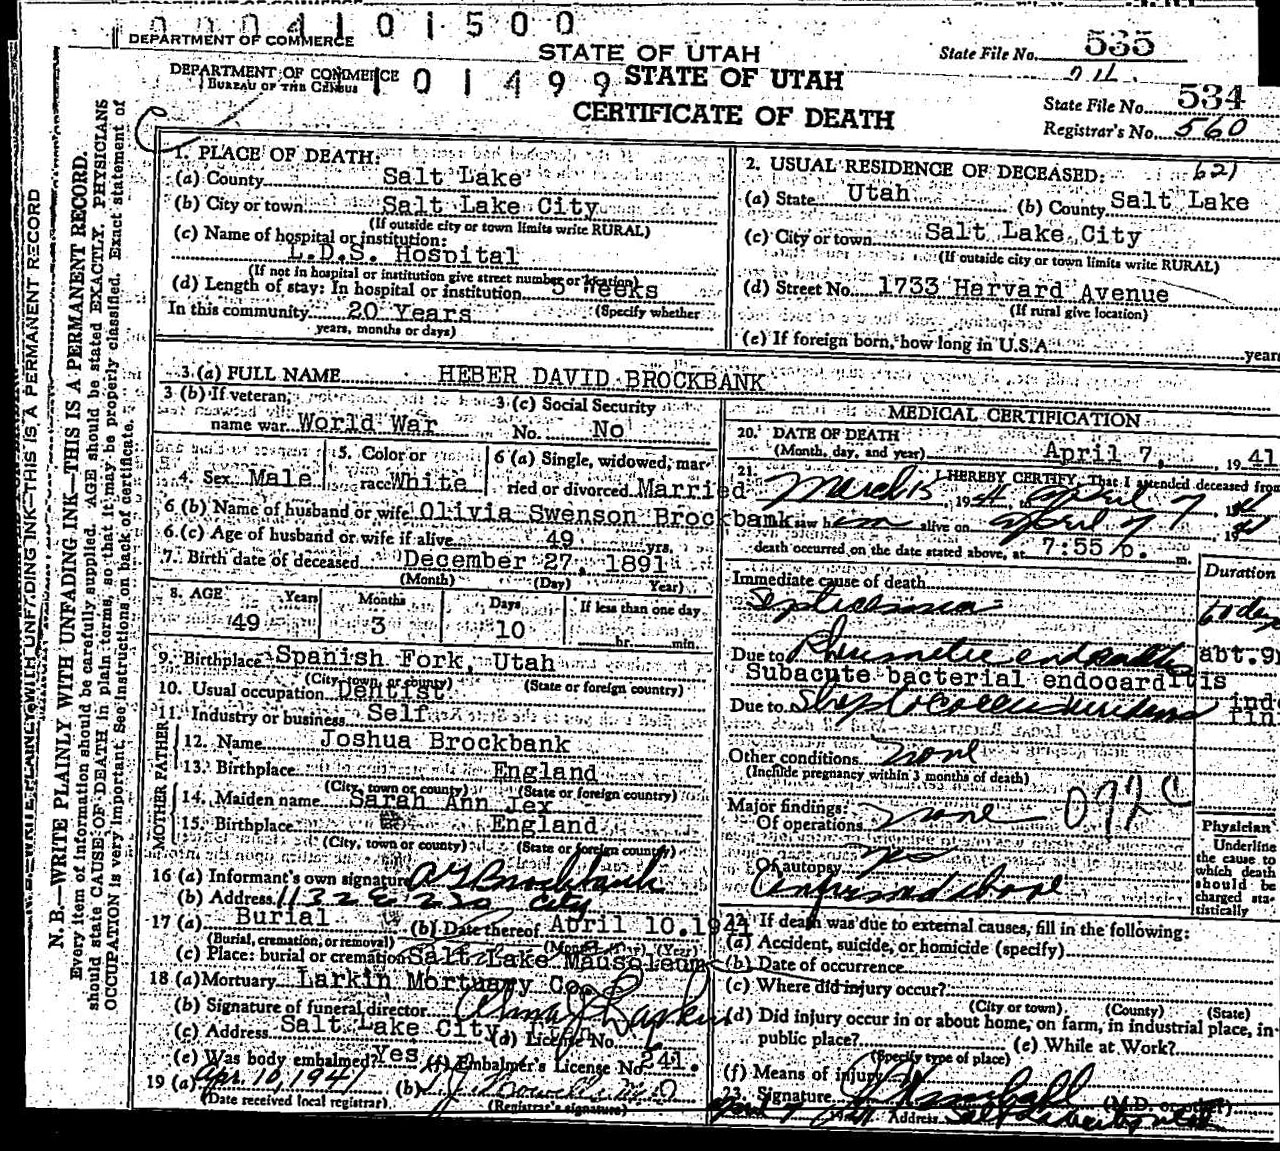 0004101500
DEPARTMENT OF COMMERCE
STATE OF UTAH
State File No. 535
DEPARTMENT OF COMMERCE
BUREAU OF THE CENSUS
101499
STATE OF UTAH
CERTIFICATE OF DEATH
State File No. 534
Registrar's No. 560
N. B.—WRITE PLAINLY WITH UNFADING INK—THIS IS A PERMANENT RECORD.
Every item of information should be carefully supplied. AGE should be stated EXACTLY. PHYSICIANS
should state CAUSE OF DEATH in plain terms, so that it may be properly classified. Exact statement of
OCCUPATION is very important. See instructions on back of certificate.
1. PLACE OF DEATH:
(a) County Salt Lake
(b) City or town Salt Lake City
(If outside city or town limits write RURAL)
(c) Name of hospital or institution:
L.D.S. Hospital
(If not in hospital or institution give street number or location)
(d) Length of stay: In hospital or institution 3 Weeks
In this community 20 Years (Specify whether
years, months or days)
2. USUAL RESIDENCE OF DECEASED: 621
(a) State Utah (b) County Salt Lake
(c) City or town Salt Lake City
(If outside city or town limits write RURAL)
(d) Street No. 1733 Harvard Avenue
(If rural give location)
(e) If foreign born, how long in U.S.A. years
3 (a) FULL NAME HEBER DAVID BROCKBANK
3 (b) If veteran, name war World War
3 (c) Social Security No. No
4. Sex Male
5. Color or race White
6 (a) Single, widowed, married or divorced Married
6 (b) Name of husband or wife Olivia Swenson Brockbank
6 (c) Age of husband or wife if alive 49 yrs.
7. Birth date of deceased December 27, 1891
(Month) (Day) Year)
8. AGE Years Months Days If less than one day
49 3 10 hr. min.
9. Birthplace Spanish Fork, Utah
(City, town, or county) (State or foreign country)
10. Usual occupation Dentist
11. Industry or business Self
FATHER
12. Name Joshua Brockbank
13. Birthplace England
(City, town or county) (State or foreign country)
MOTHER
14. Maiden name Sarah Ann Jex
15. Birthplace England
(City, town or county) (State or foreign country)
16 (a) Informant's own signature Brockbank
(b) Address 1132 E 2 So City
17 (a) Burial (b) Date thereof April 10, 1941
(Burial, cremation, or removal) (Month) (Day) (Year)
(c) Place: burial or cremation Salt Lake Mausoleum
18 (a) Mortuary Larkin Mortuary Co.
(b) Signature of funeral director Alma J Larkin
(c) Address Salt Lake City, Utah (d) License No.
(e) Was body embalmed? Yes (f) Embalmer's License No. 241.
19 (a) Apr. 10, 1941 (b)
(Date received local registrar) (Registrar's signature)
MEDICAL CERTIFICATION
20. DATE OF DEATH
(Month, day, and year) April 7, 1941
21. I HEREBY CERTIFY, That I attended deceased from
March 15, 1941 April 7, 19
saw him alive on April 7 19
death occurred on the date stated above, at 7:55 p. m.
Duration
Immediate cause of death
Septicemia
Due to Rheumatic endocarditis abt.
Subacute bacterial endocarditis
Due to Streptococcus viridans
Other conditions none
(Include pregnancy within 3 months of death)
Major findings:
Of operations none
092 C
Of autopsy
Confirmed above
Physician
Underline
the cause to
which death
should be
charged sta-
tistically
22. If death was due to external causes, fill in the following:
(a) Accident, suicide, or homicide (specify)
(b) Date of occurrence
(c) Where did injury occur?
(City or town) (County) (State)
(d) Did injury occur in or about home, on farm, in industrial place, in
public place? (e) While at Work?
(Specify type of place)
(f) Means of injury
23. Signature (M.D. or other)
Address Salt Lake City